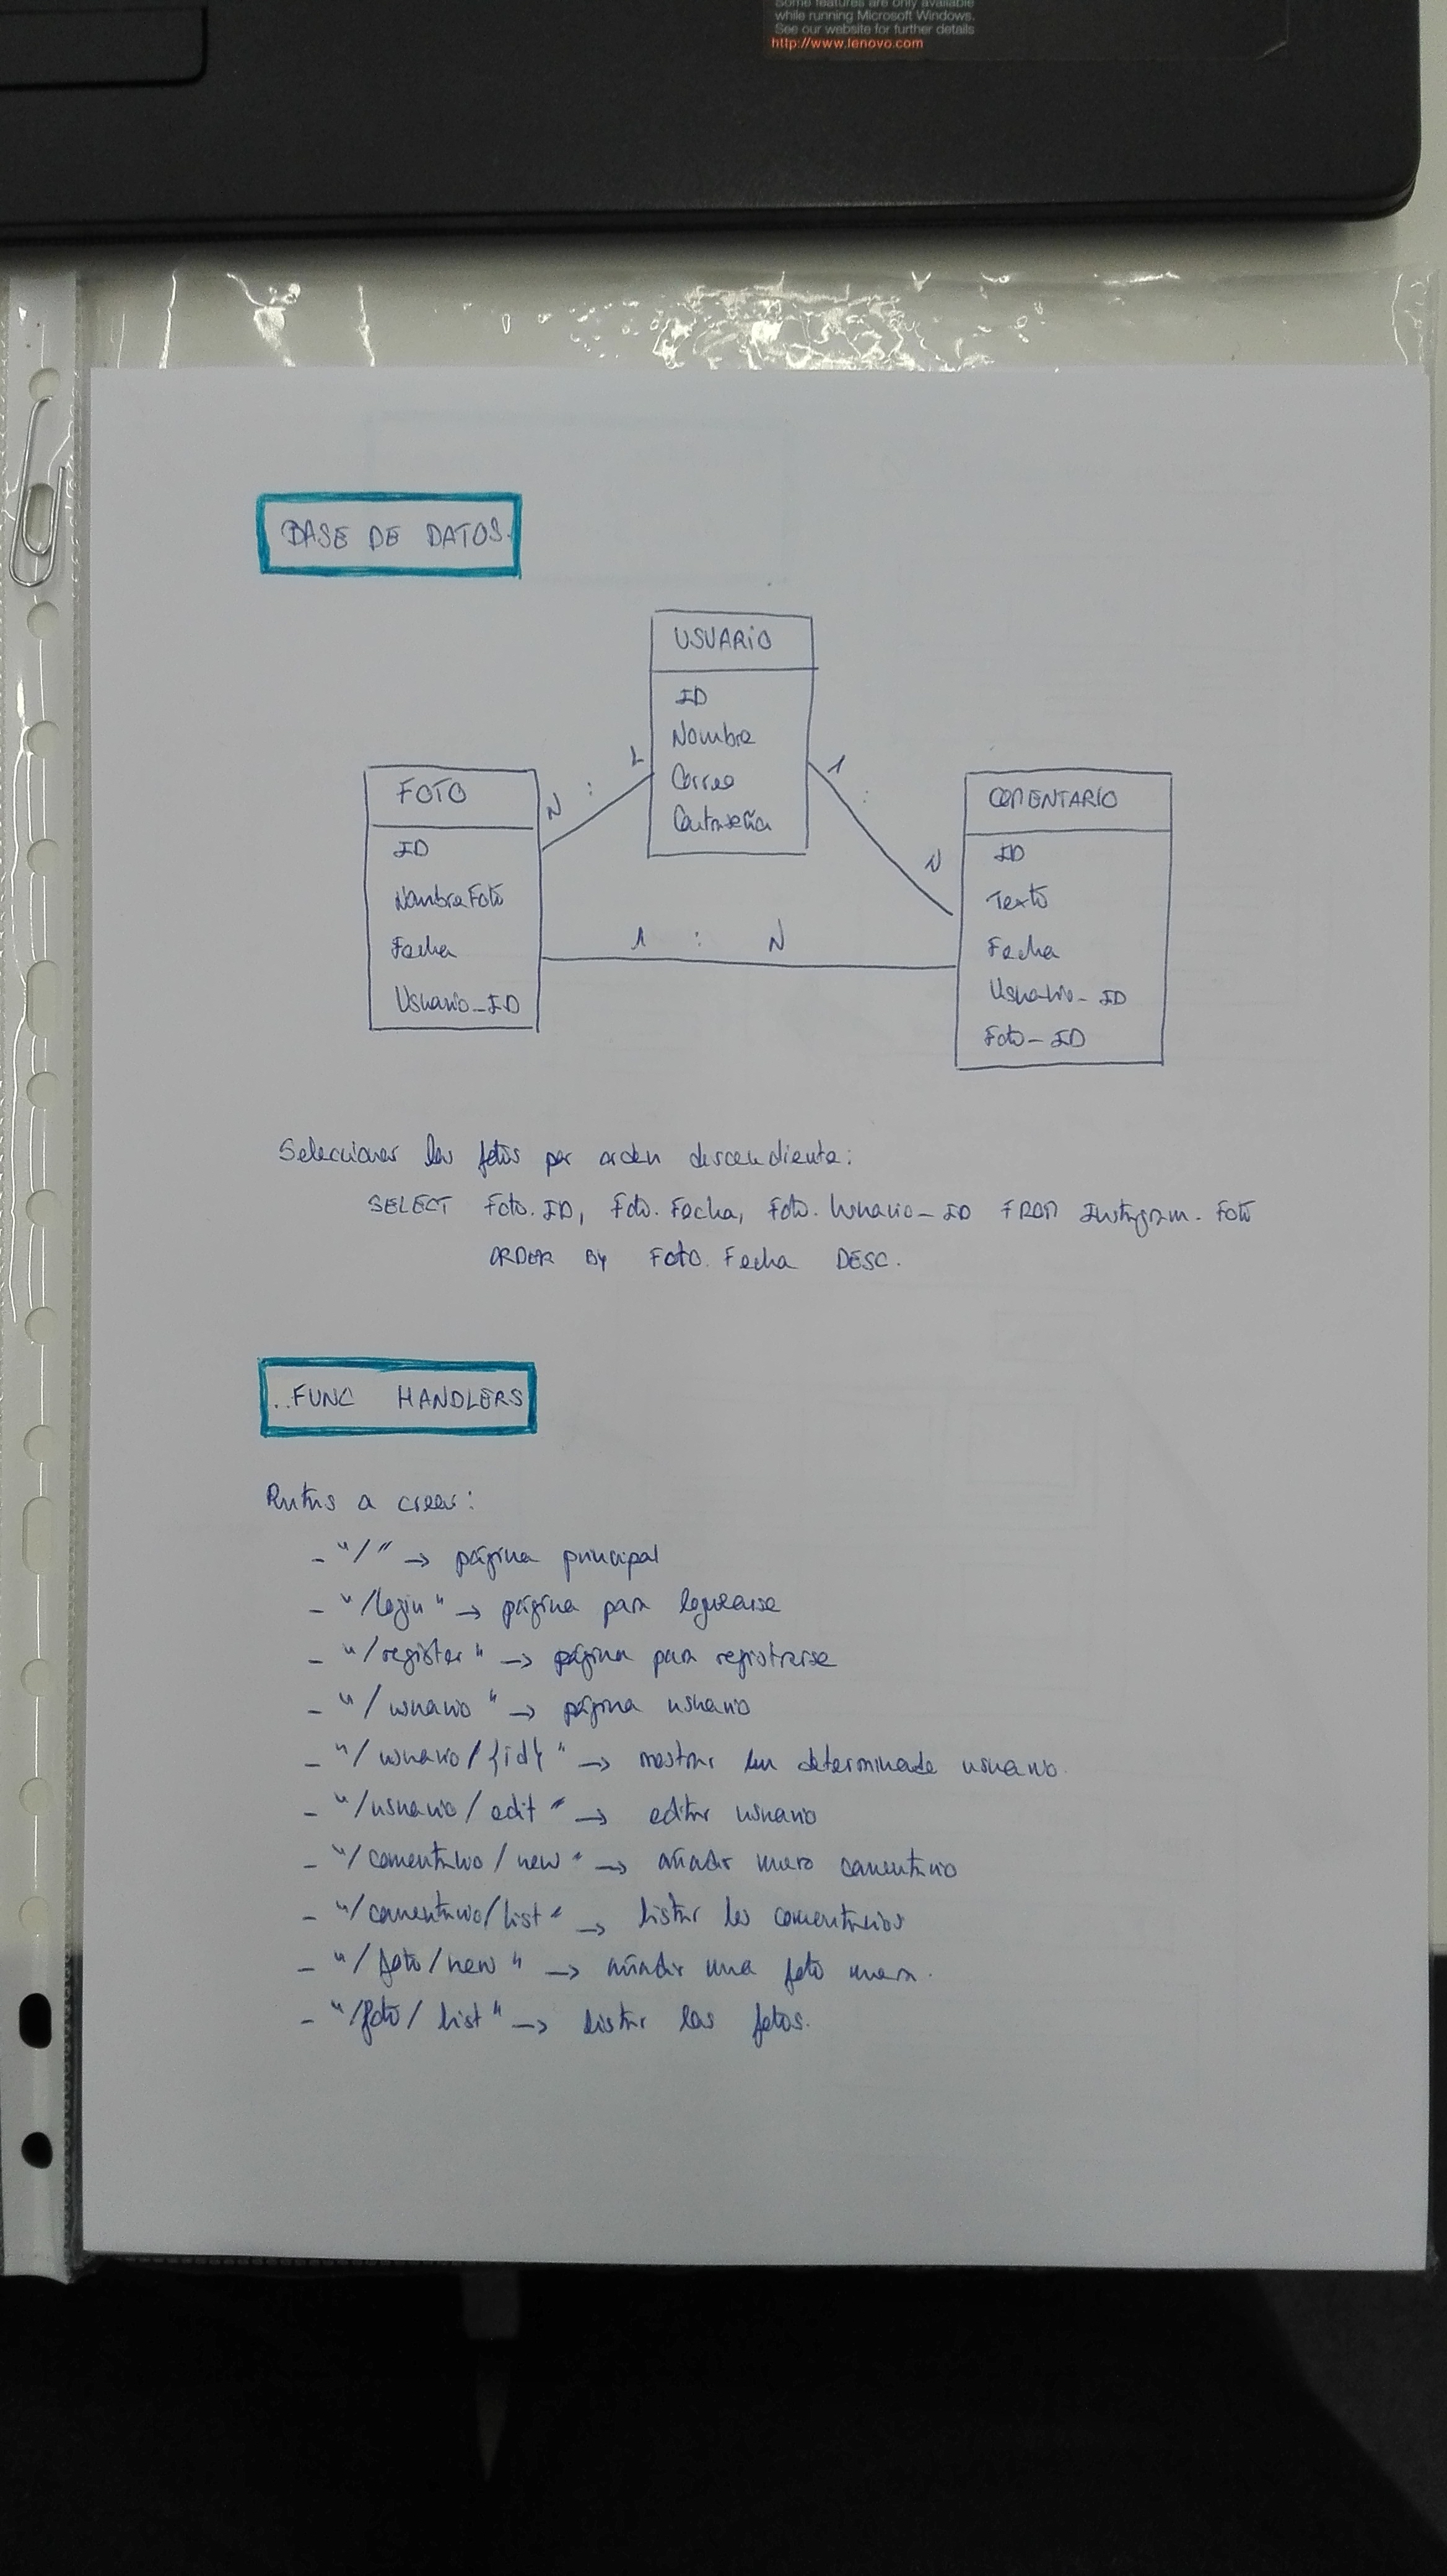 Some features are only available
while running Microsoft Windows.
See our website for further details
http://www.lenovo.com
BASE DE DATOS.
USUARIO
ID
Nombre
Correo
Contraseña
FOTO
ID
NombreFoto
Fecha
Usuario_ID
COMENTARIO
ID
Texto
Fecha
Usuario_ID
Foto_ID
N : 1
1 : N
1 : N
Seleccionar las fotos por orden descendiente:
SELECT Foto.ID, Foto.Fecha, Foto.Usuario_ID FROM Instagram.Foto
ORDER BY Foto.Fecha DESC.
..FUNC HANDLERS
Rutas a crear:
- "/" → página principal
- "/login" → página para loguearse
- "/register" → página para registrarse
- "/usuario" → página usuario
- "/usuario/{id}" → mostrar un determinado usuario.
- "/usuario/edit" → editar usuario
- "/comentario/new" → añadir nuevo comentario
- "/comentario/list" → listar los comentarios
- "/foto/new" → añadir una foto nueva.
- "/foto/list" → listar las fotos.